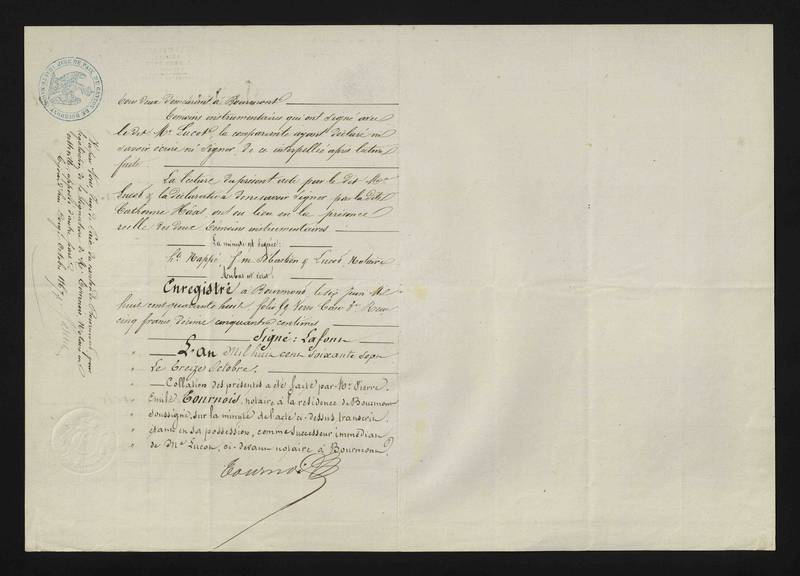 tous deux demeurant à Bourmont
Témoins instrumentaires qui ont signé avec
le dit Me Lucot, la comparante ayant déclaré ne
savoir écrire ni signer, de ce interpellée après lecture
faite
La lecture du présent acte par le dit Me
Lucot & la déclaration de ne savoir signer par la dite
Catherine ont eu lieu en la présence
réelle des deux témoins instrumentaires
La minute est signée:
Mathieu & Lucot, Notaire
Enregistré à Bourmont, le six Juin Mil
huit cent quarante huit folio Verso Case Reçu
cinq francs, décime cinquante centimes
Signé: Lafont
L'an Mil huit cent soixante sept
Le Treize Octobre,
Collation des présentes a été faite par Me Pierre
Emile Tournois, notaire à la résidence de Bourmont
soussigné, sur la minute de l'acte ci-dessus transcrit,
étant en sa possession, comme successeur immédiat
de Me Lucot, ci-devant notaire à Bourmont.
Tournois
JUGE DE PAIX DU CANTON DE BOURMONT
Vu par Nous, Juge de Paix du canton de Bourmont pour
législation de la signature de Me Tournois, Notaire en
Octobre 1867